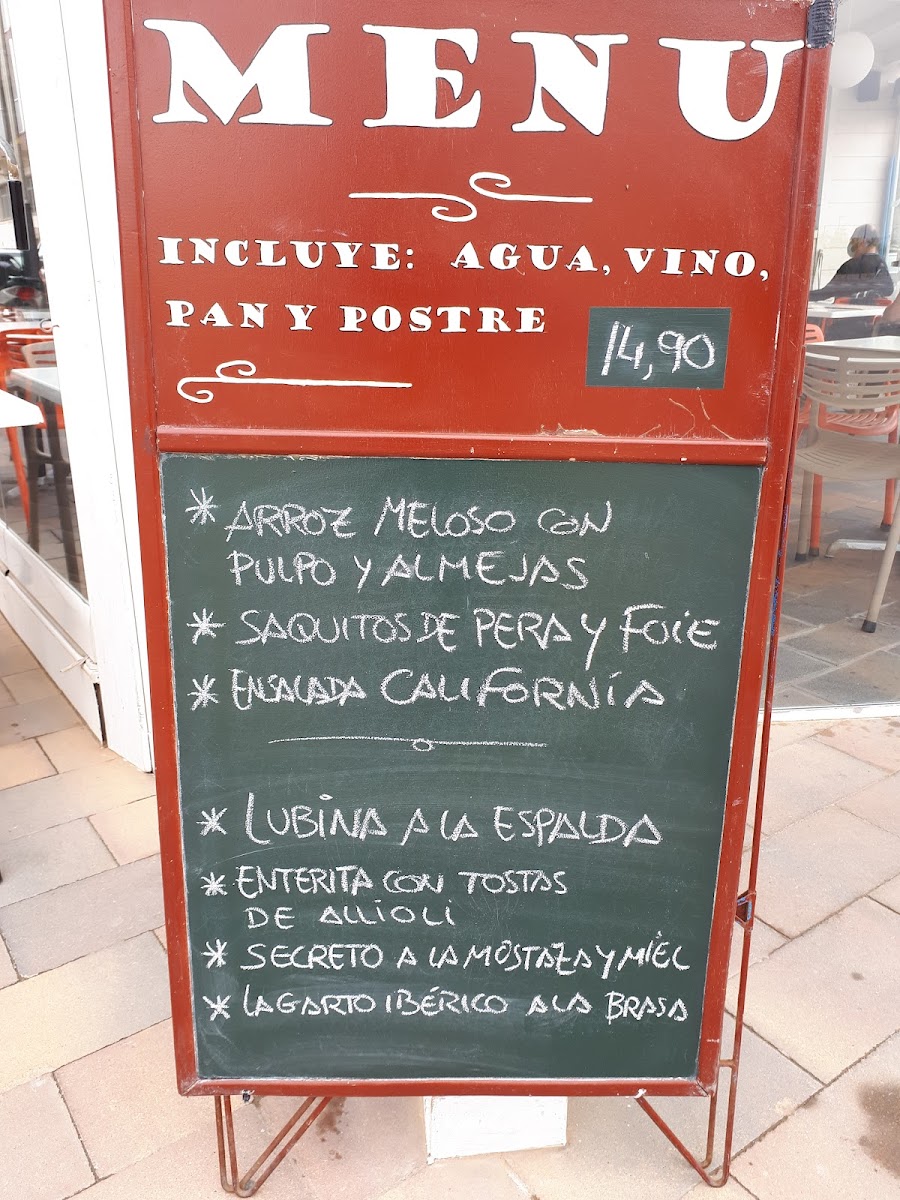 MENU
INCLUYE: AGUA, VINO,
PAN Y POSTRE
14,90
* ARROZ MELOSO CON
PULPO Y ALMEJAS
* SAQUITOS DE PERA Y FOIE
* ENSALADA CALIFORNIA
* LUBINA A LA ESPALDA
* ENTERITA CON TOSTAS
DE ALLIOLI
* SECRETO A LA MOSTAZA Y MIEL
* LAGARTO IBÉRICO A LA BRASA